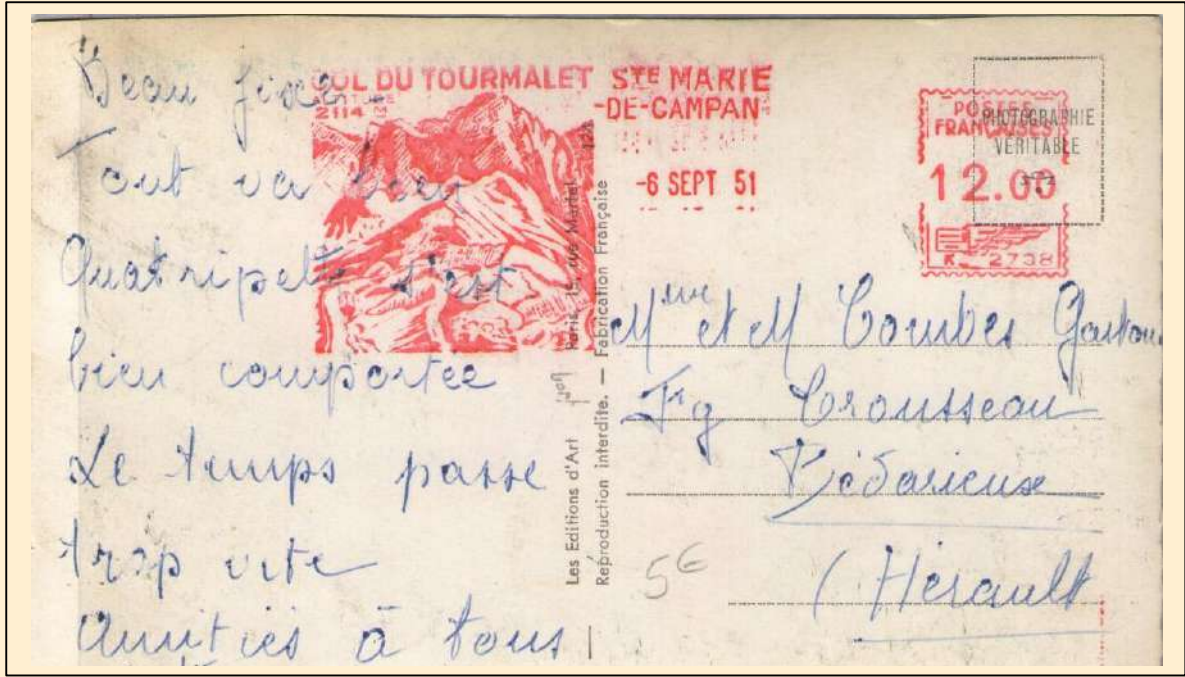 Beau fixe
Tout va bien
Quatripette s'est
bien comportée
Le temps passe
trop vite
Amitiés à tous
COL DU TOURMALET
ALTITUDE
2114 M
STE MARIE
-DE-CAMPAN-
-6 SEPT 51
POSTES
FRANÇAISES
12.00
K 2738
PHOTOGRAPHIE
VERITABLE
Les Editions d'Art
Reproduction interdite. — Fabrication Française
Mme et M Combes Gaston
Fg Trousseau
Bédarieux
(Hérault
5€